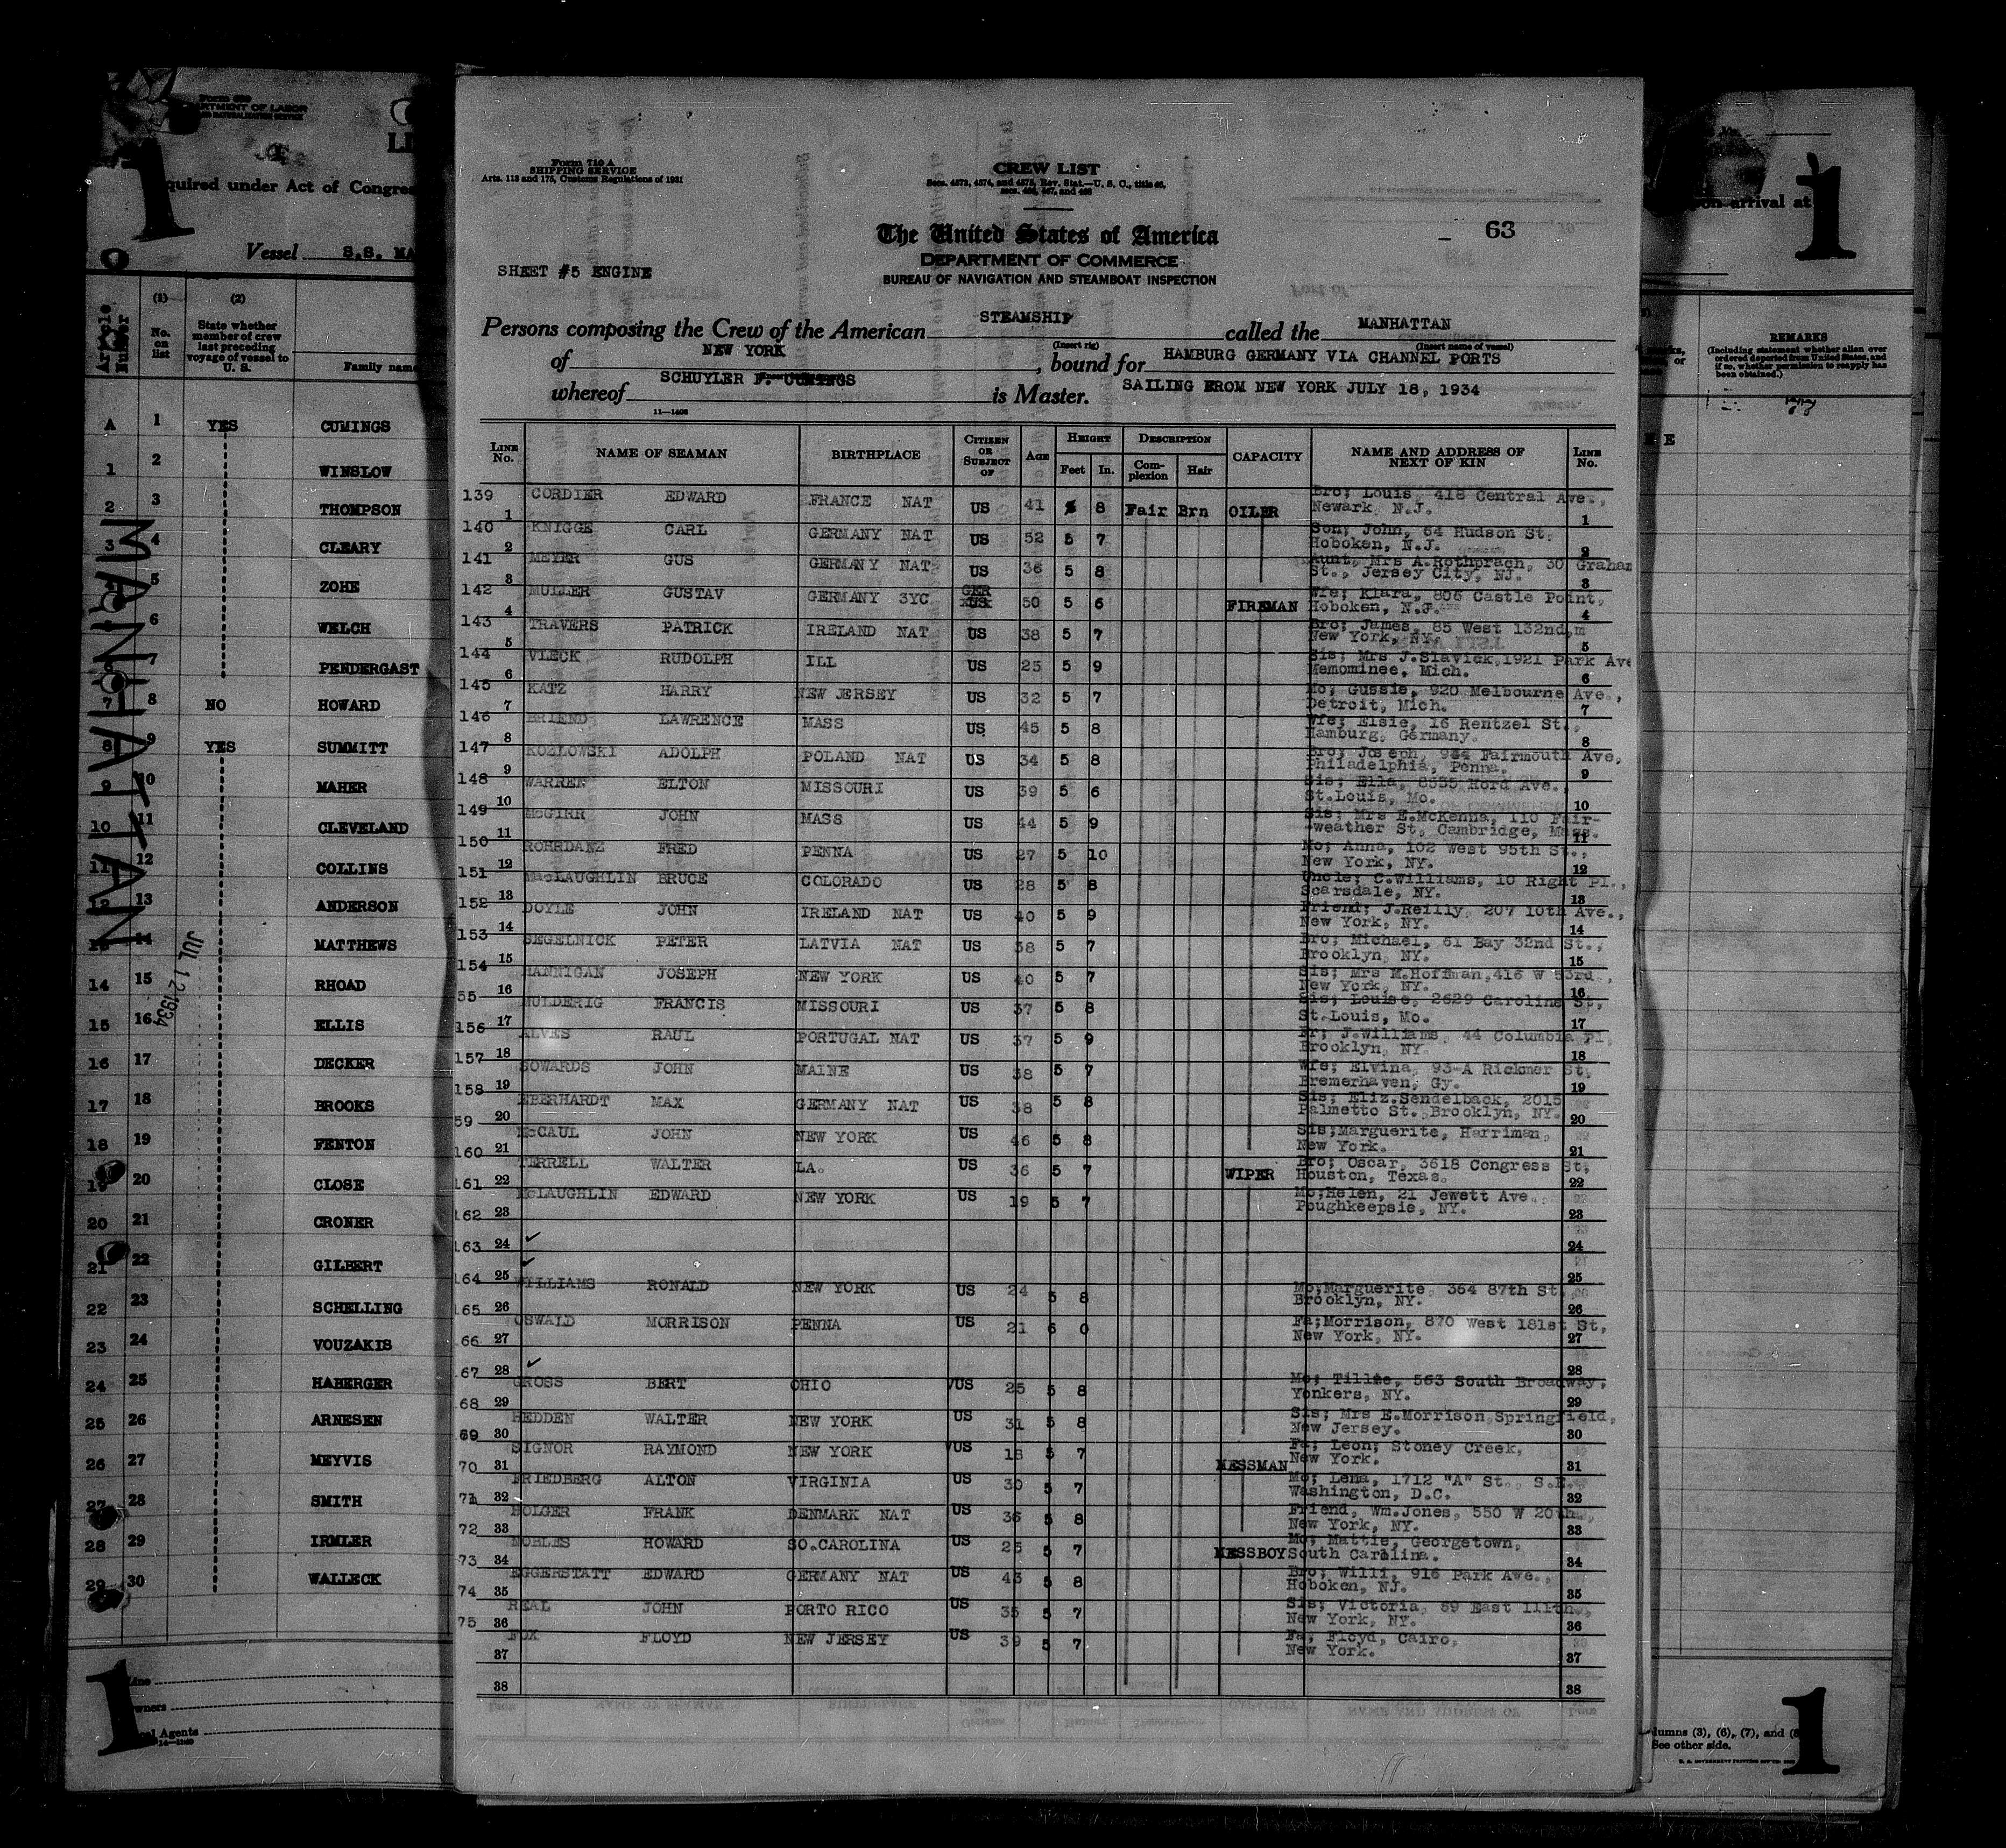 Form 710 A
SHIPPING SERVICE
Arts. 113 and 175, Customs Regulations of 1931
CREW LIST
Secs. 4573, 4574, and 4575, Rev. Stat.—U. S. C., title 46,
secs. 465, 467, and 468
The United States of America
63
DEPARTMENT OF COMMERCE
BUREAU OF NAVIGATION AND STEAMBOAT INSPECTION
SHEET #5 ENGINE
Persons composing the Crew of the American STEAMSHIP called the MANHATTAN
(Insert rig) (Insert name of vessel)
of NEW YORK, bound for HAMBURG GERMANY VIA CHANNEL PORTS
whereof SCHUYLER F. CUMINGS is Master. SAILING FROM NEW YORK JULY 18, 1934
11—1408
LINE No. NAME OF SEAMAN BIRTHPLACE CITIZEN OR SUBJECT OF AGE HEIGHT Feet In. DESCRIPTION Complexion Hair CAPACITY NAME AND ADDRESS OF NEXT OF KIN LINE No.
139 1 CORDIER EDWARD FRANCE NAT US 41 5 8 Fair Brn OILER Bro; Louis, 418 Central Ave., Newark, N.J. 1
140 2 KNIGGE CARL GERMANY NAT US 52 5 7 Son; John, 64 Hudson St. Hoboken, N.J. 2
141 3 MEYER GUS GERMANY NAT US 36 5 8 Aunt, Mrs A.Rothprach, 30 Graham St., Jersey City, NJ. 3
142 4 MULLER GUSTAV GERMANY 3YC GER US 50 5 6 FIREMAN Wfe; Klara, 806 Castle Point, Hoboken, N.J. 4
143 5 TRAVERS PATRICK IRELAND NAT US 38 5 7 Bro; James, 85 West 132nd,m New York, NY. 5
144 6 VLECK RUDOLPH ILL US 25 5 9 Sis; Mrs J.Slavick,1921 Park Ave Memominee, Mich. 6
145 7 KATZ HARRY NEW JERSEY US 32 5 7 Mo; Gussie, 920 Melbourne Ave., Detroit, Mich. 7
146 8 BRIEND LAWRENCE MASS US 45 5 8 Wfe; Elsie, 16 Rentzel St., Hamburg, Germany. 8
147 9 KOZLOWSKI ADOLPH POLAND NAT US 34 5 8 Bro; Joseph, 964 Fairmouth Ave, Philadelphia, Penna. 9
148 10 WARREN ELTON MISSOURI US 39 5 6 Sis; Ella, 8535 Hord Ave., St.Louis, Mo. 10
149 11 McGIRR JOHN MASS US 44 5 9 Sis; Mrs E.McKenna, 110 Fair- -weather St, Cambridge, Mass. 11
150 12 ROHRDANZ FRED PENNA US 27 5 10 Mo; Anna, 102 West 95th St., New York, NY. 12
151 13 MacLAUGHLIN BRUCE COLORADO US 28 5 8 Uncle; C.Williams, 10 Right Pl., Scarsdale, NY. 13
152 14 DOYLE JOHN IRELAND NAT US 40 5 9 Friend; J.Reilly, 207 10th Ave., New York, NY. 14
153 15 SEGELNICK PETER LATVIA NAT US 38 5 7 Bro; Michael, 61 Bay 32nd St., Brooklyn, NY. 15
154 16 HANNIGAN JOSEPH NEW YORK US 40 5 7 Sis; Mrs M.Hoffman,416 W 53rd, New York, NY. 16
55 17 MULDERIG FRANCIS MISSOURI US 37 5 8 Sis; Louise, 2629 Caroline St, St.Louis, Mo. 17
156 18 ALVES RAUL PORTUGAL NAT US 37 5 9 Fr; J.Williams, 44 Columbia Pl, Brooklyn, NY. 18
157 19 SOWARDS JOHN MAINE US 38 5 7 Wfe; Elvina, 93-A Rickmer St, Bremerhaven, Gy. 19
158 20 EBERHARDT MAX GERMANY NAT US 38 5 8 Sis; Eliz.Sendelback, 2015 Palmetto St. Brooklyn, NY. 20
59 21 McCAUL JOHN NEW YORK US 46 5 8 Sis;Marguerite, Harriman, New York. 21
160 22 TERRELL WALTER LA. US 36 5 7 WIPER Bro; Oscar, 3618 Congress St, Houston, Texas. 22
161 23 McLAUGHLIN EDWARD NEW YORK US 19 5 7 Mo;Helen, 21 Jewett Ave. Poughkeepsie, NY. 23
162 24 ✓ 24
163 25 ✓ 25
164 26 WILLIAMS RONALD NEW YORK US 24 5 8 Mo;Marguerite, 364 87th St, Brooklyn, NY. 26
65 27 OSWALD MORRISON PENNA US 21 6 0 Fa;Morrison, 870 West 181st St, New York, NY. 27
66 28 ✓ 28
67 29 GROSS BERT OHIO ✓US 25 5 8 Mo; Tillie, 563 South Broadway, Yonkers, NY. 29
68 30 HEDDEN WALTER NEW YORK US 31 5 8 Sis; Mrs E.Morrison,Springfield, New Jersey. 30
69 31 SIGNOR RAYMOND NEW YORK ✓US 18 5 7 MESSMAN Fa; Leon; Stoney Creek, New York. 31
70 32 FRIEDBERG ALTON VIRGINIA US 30 5 7 Mo; Lena, 1712 "A" St., S.E. Washington, D.C. 32
71 33 HOLGER FRANK DENMARK NAT US 36 5 8 Friend, Wm.Jones, 550 W 20th, New York, NY. 33
72 34 NOBLES HOWARD SO.CAROLINA US 25 5 7 MESSBOY Mo; Mattie, Georgetown, South Carolina. 34
73 35 EGGERSTATT EDWARD GERMANY NAT US 43 5 8 Bro; Willi, 916 Park Ave., Hoboken, NJ. 35
74 36 REAL JOHN PORTO RICO US 35 5 7 Sis; Victoria, 59 East 111th, New York, NY. 36
75 37 FOX FLOYD NEW JERSEY US 39 5 7 Fa; Floyd, Cairo, New York. 37
38 38
1
DEPARTMENT OF LABOR
quired under Act of Congre
Vessel S.S. MA
Article Number
(1) No. on list
(2) State whether member of crew last preceding voyage of vessel to U. S.
Family name
A 1 YES CUMINGS
1 2 WINSLOW
2 3 THOMPSON
3 4 CLEARY
5 ZOHE
6 WELCH
6 7 PENDERGAST
7 8 NO HOWARD
8 9 YES SUMMITT
9 10 MAHER
10 11 CLEVELAND
11 12 COLLINS
12 13 ANDERSON
13 14 MATTHEWS
14 15 RHOAD
15 16 ELLIS
16 17 DECKER
17 18 BROOKS
18 19 FENTON
19 20 CLOSE
20 21 CRONER
21 22 GILBERT
22 23 SCHELLING
23 24 VOUZAKIS
24 25 HABERGER
25 26 ARNESEN
26 27 MEYVIS
27 28 SMITH
28 29 IRMLER
29 30 WALLECK
MANHATTAN
JUL 12 1934
1
Line
wners
cal Agents
1
on arrival at
REMARKS
(Including statement whether alien ever ordered deported from United States, and if so, whether permission to reapply has been obtained.)
lumns (3), (6), (7), and (8
See other side.
U. S. GOVERNMENT PRINTING OFFICE
1